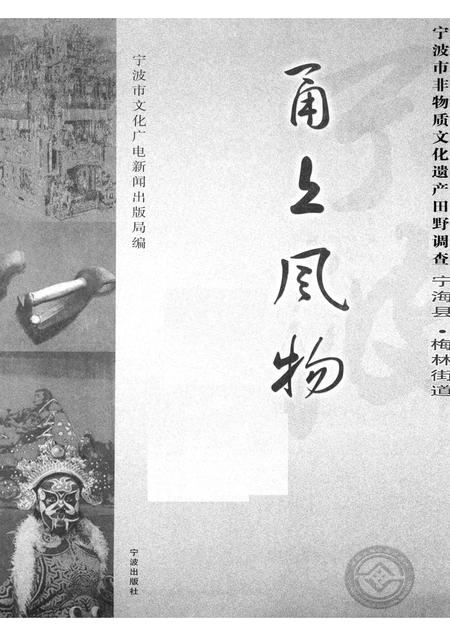 宁波市非物质文化遗产田野调查
宁海县·梅林街道
甬上风物
宁波市文化广电新闻出版局编
宁波出版社